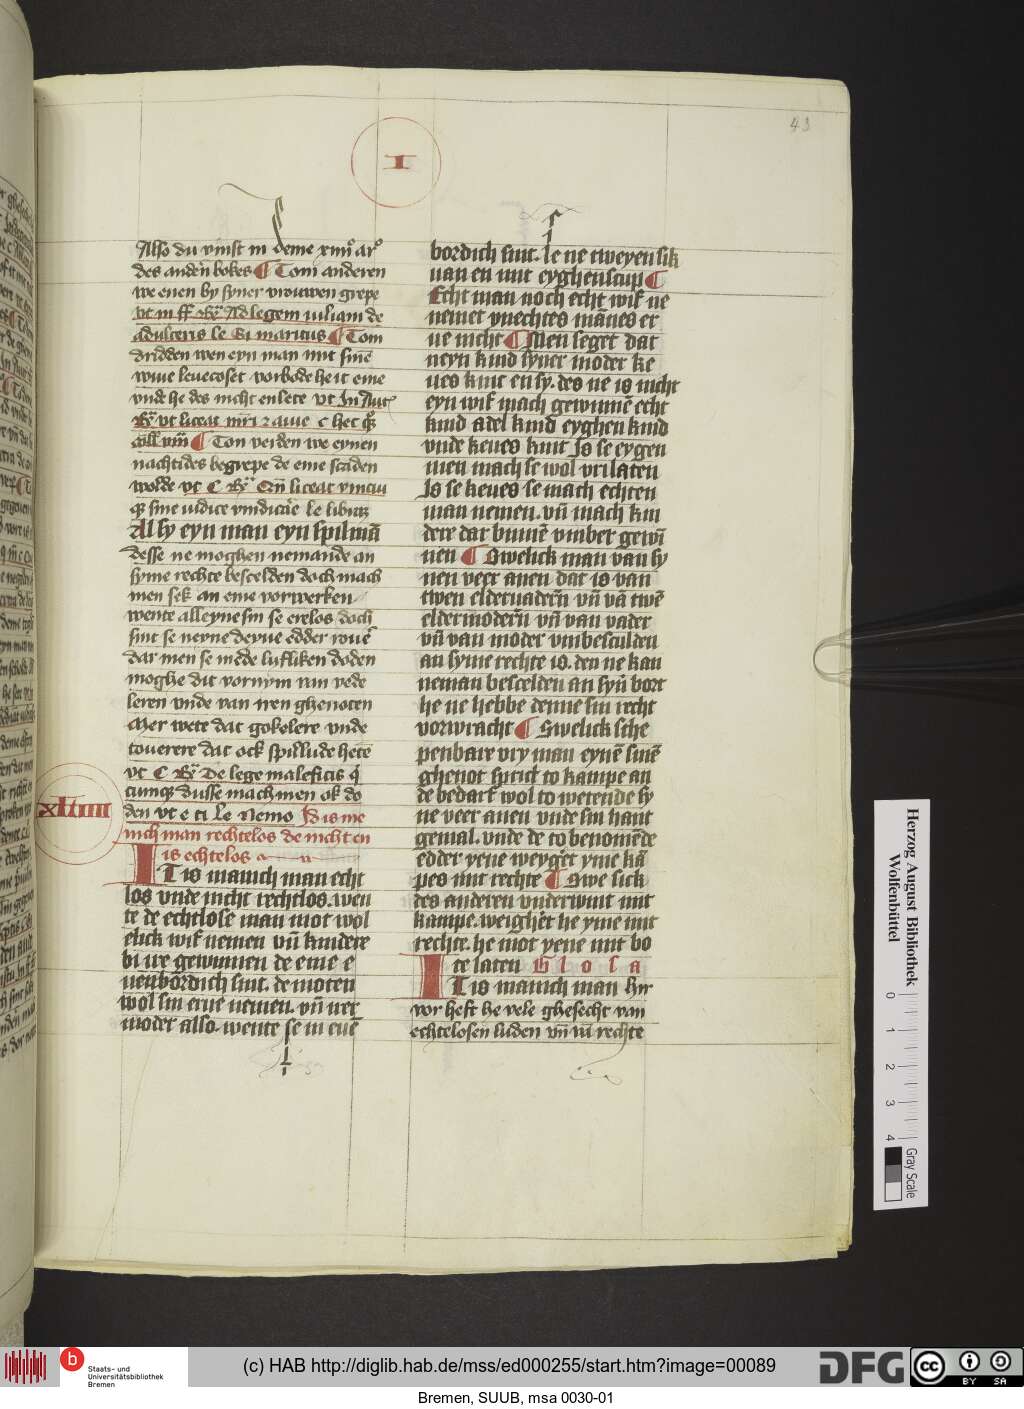 43
I
Also du vinst in deme xiiij ar
des anderen bokes ¶ Tom anderen
we enen by syner vrouwen grepe
vt in ff Ad legem iuliam de
adulteriis le Si maritus ¶ Tom
drudden wen eyn man mit sine
wiue leuecoset vorbode he it eme
vnde he des nicht enlete vt In Aut
vt liceat
¶ Ton veirden we eynen
nachtides begrepe de eme scaden
wolde vt C liceat
sine iudice vindicare le liberam
Al sy eyn man eyn spilmã
desse ne moghen nemande an
syme rechte bescelden doch mach
men sek an eme vorwerken
wente alleyne sin se erelos doch
sint se neyne deyue edder roue
dar men se mede lufliken doden
moghe dit vornym van vede
leren vnde van iren ghenoten
Mer wete dat gokelere vnde
touerere dat ock spillude hete
vt C De lege maleficis
cumque dusse mach men ok do
den vt e ti le Nemo Id is me
nich man rechtelos de nicht en
is echtelos
xliiii
IT is manich man echt
los vnde nicht rechtlos. wen
te de echtlose man mot wol
elick wif nemen vñ kindere
bi ire gewinnen de eme e
uenbordich sint. de moten
wol sin erue nemen. vñ irer
moder also. wente se in euẽ
bordich sint. Se ne tweyen sik
uan en mit eyghenscup ¶
Echt man noch echt wif ne
nemet vnechtes mãnes er
ue nicht ¶ Men seget dat
neyn kind syner moder ke
ues kint en sy. des ne is nicht
eyn wif mach gewinnẽ echt
kind adel kind eyghen kind
vnde keues kint Is se eygen
men mach se wol vri laten
Is se keues se mach echten
man nemen. vñ mach kin
dere dar binnẽ vmber gewĩ
nen ¶ Swelick man van sy
nen veer anen dat is van
twen eldernadern vñ vã twẽ
eldermodern vñ van vader
vñ van moder vmbesculden
an syme rechte is. den ne kan
neman bescelden an syñ bort
he ne hebbe denne sin recht
vorwracht ¶ Swelick sche
penbare vry man eynẽ sinẽ
ghenot sprict to kampe an
de bedarf wol to wetende sy
ne veer anen vnde sin hant
gemal. vnde de to benomẽde
edder yene weyget yme kã
pes mit rechte ¶ Swe sick
des anderen vnderwint mit
kampe. weighet he yme mit
rechte. he mot yene mit bo
te laten Glosa
IT is manich man hir
vor heft he vele ghesecht van
echtelosen luden vñ vñ rechte
Herzog August Bibliothek
Wolfenbüttel
0 1 2 3 4
Gray Scale
b
Staats- und
Universitätsbibliothek
Bremen
(c) HAB http://diglib.hab.de/mss/ed000255/start.htm?image=00089
DFG
cc BY SA
Bremen, SUUB, msa 0030-01